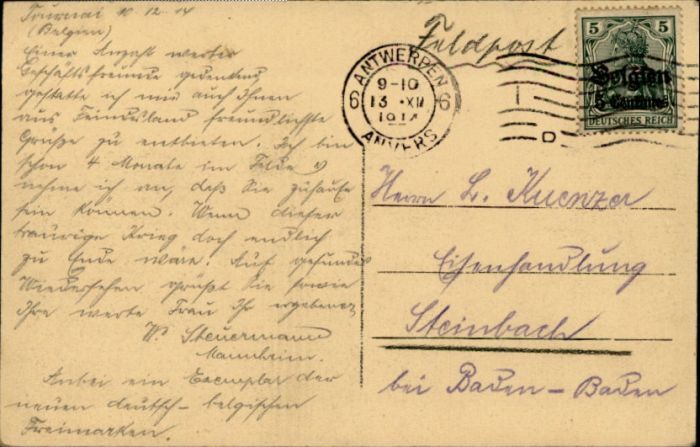 Tournai 10.12.14
(Belgien)
Einer Anzahl werter
Geschäftsfreunde gedenkend
gestatte ich mir auch Ihnen
aus Feindesland freundlichste
Grüße zu entbieten. Ich bin
schon 4 Monate im Felde &
nehme ich an, daß Sie zuhause
sein können. Wenn dieser
traurige Krieg doch endlich
zu Ende wäre. Auf gesundes
Wiedersehen grüßt Sie sowie
Ihre werte Frau Ihr ergebener
W. Steuermann
Mannheim.
Anbei ein Exemplar der
neuen deutsch-belgischen
Freimarken.
Feldpost
ANTWERPEN
6 9-10 6
13 XII
1914
ANVERS
D
5 5
Belgien
5 Centimes
DEUTSCHES REICH
Herrn L. Kuenzer
Eisenhandlung
Steinbach
bei Baden-Baden